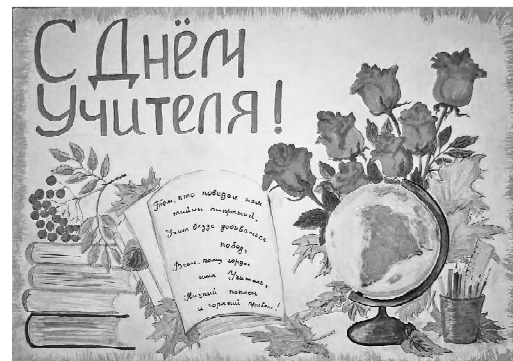 С Днём
Учителя!
Тем, кто поведал нам
тайны открытий,
Учит везде добиваться
побед,
Всем, кому гордое
имя Учитель,
Низкий поклон
и горячий привет!